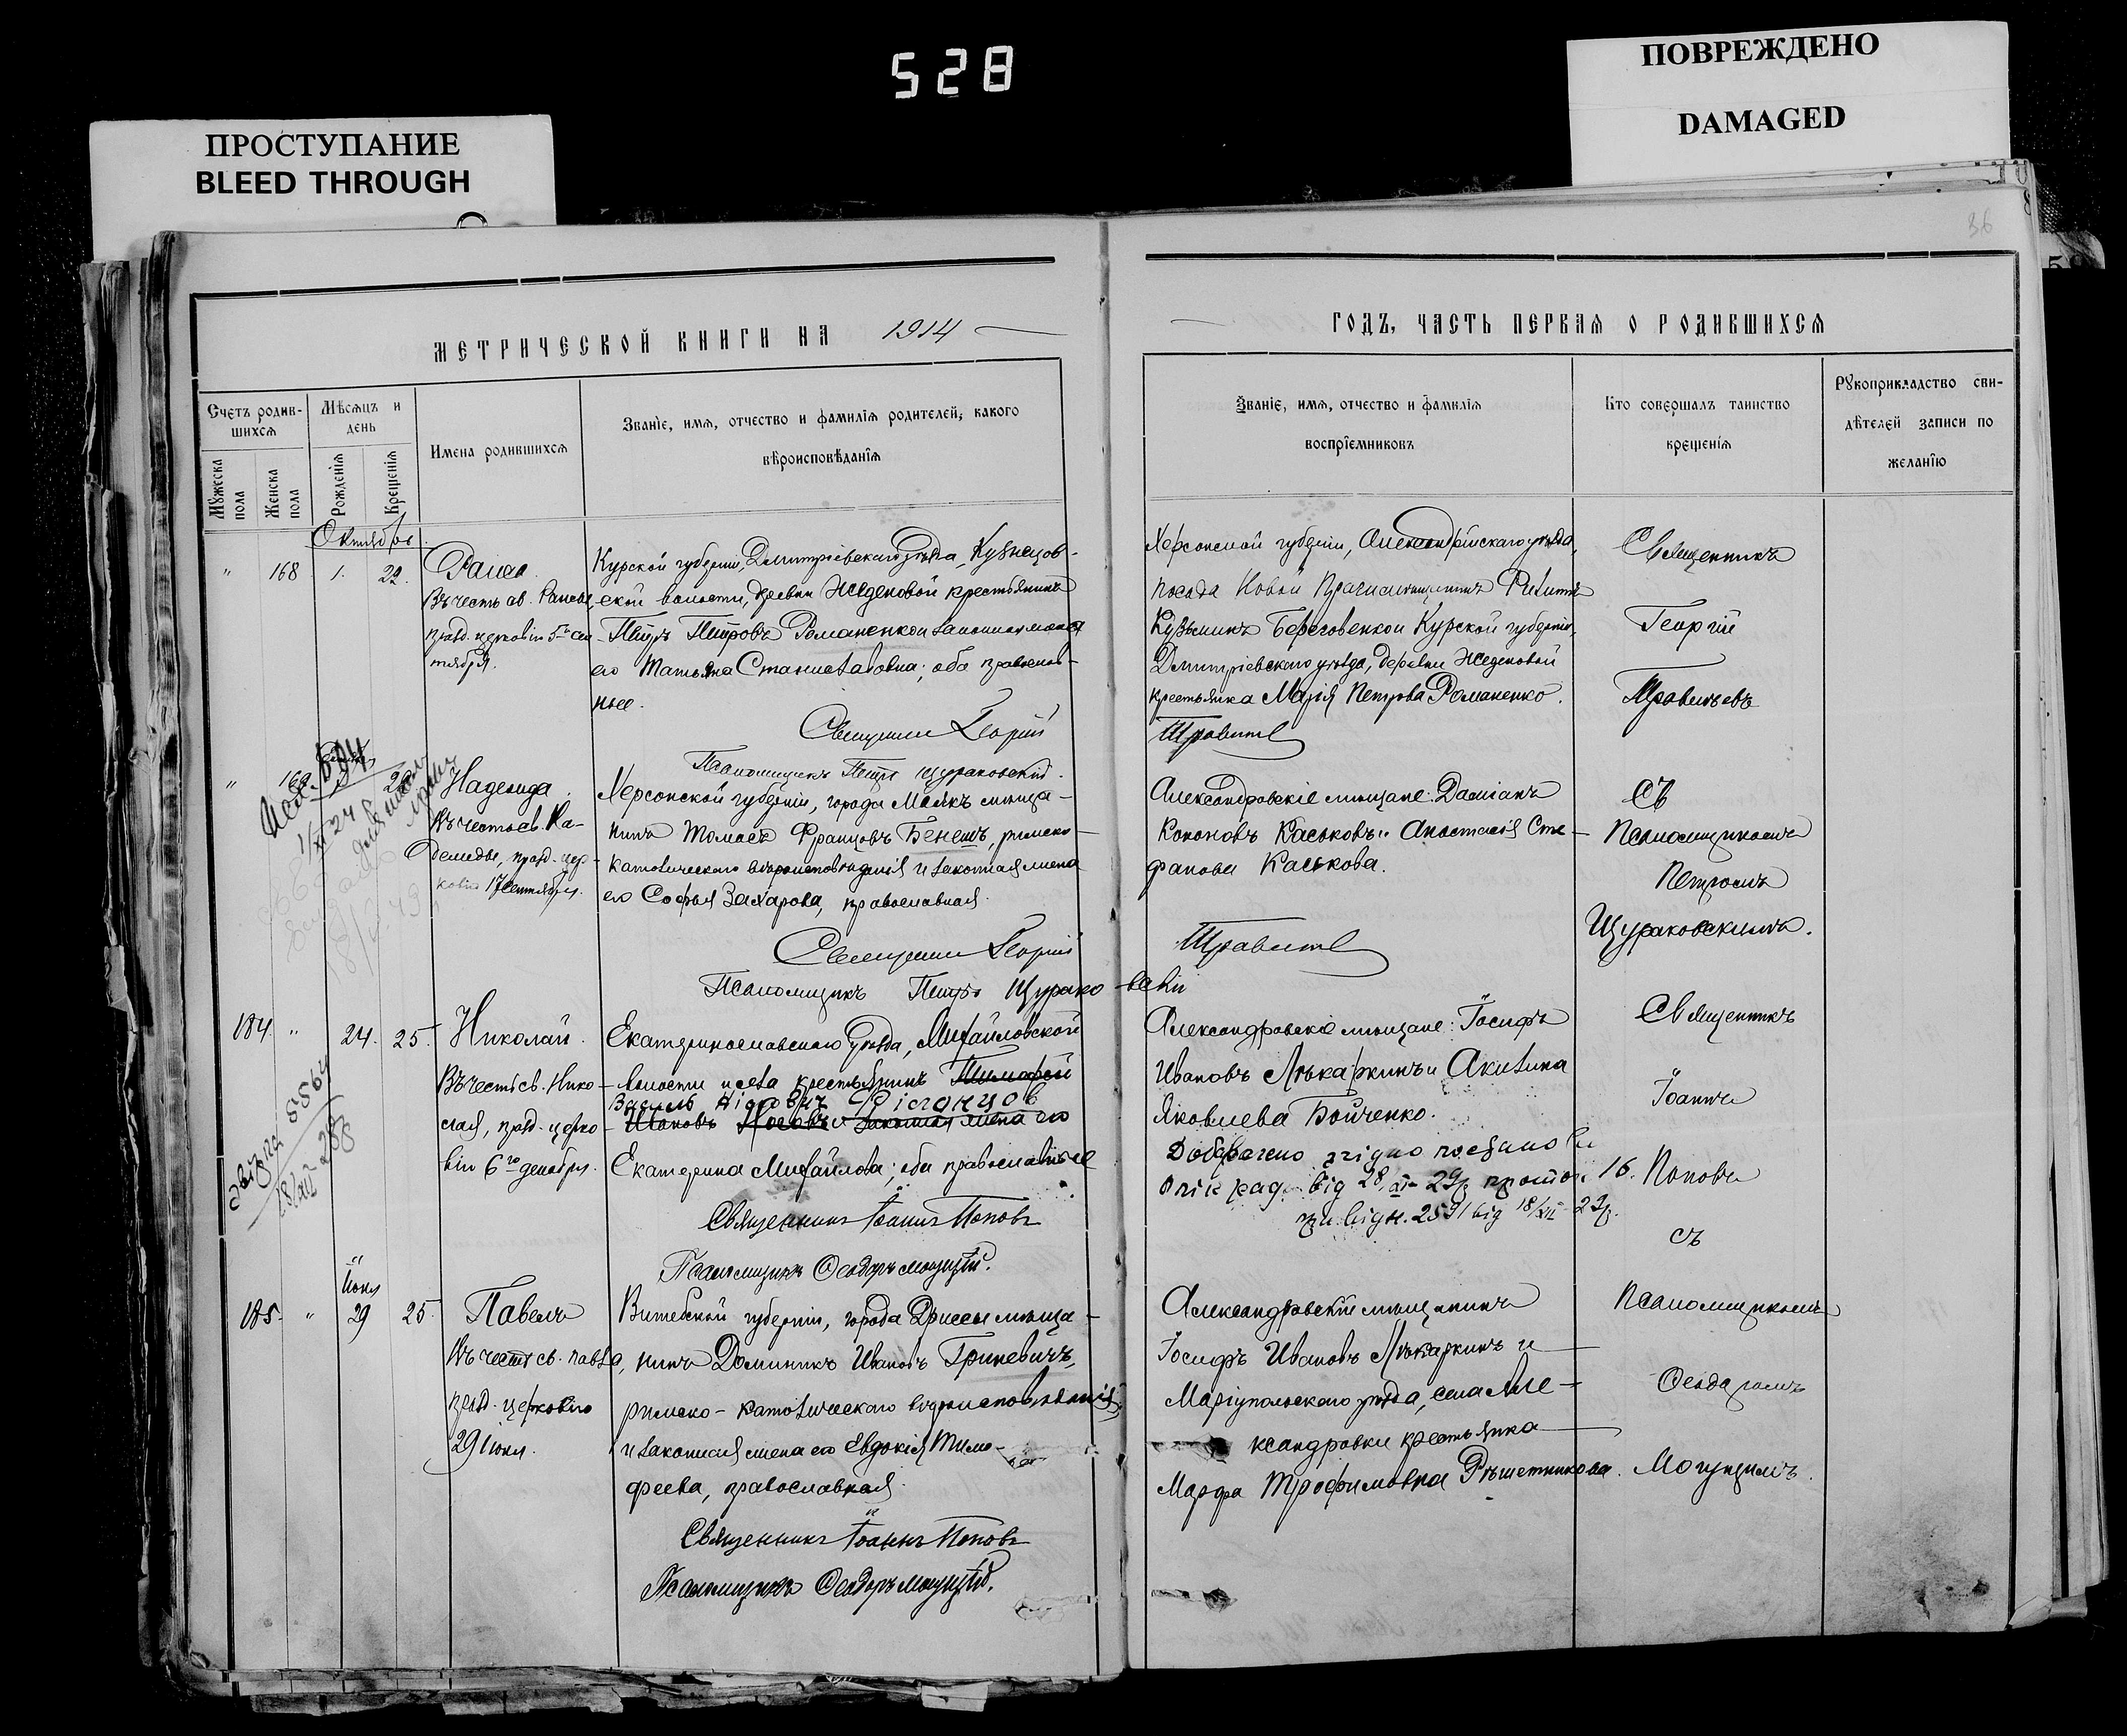 528
ПОВРЕЖДЕНО
DAMAGED
ПРОСТУПАНИЕ
BLEED THROUGH
36
МЕТРИЧЕСКОЙ КНИГИ НА 1914
ГОДЪ, ЧАСТЬ ПЕРВАЯ О РОДИВШИХСЯ
Счетъ родив-
шихся
Мужеска пола
Женска пола
Мѣсяцъ и
день
Рожденія
Крещенія
Имена родившихся
Званіе, имя, отчество и фамилія родителей, какого
вѣроисповѣданія
Званіе, имя, отчество и фамилія
воспріемниковъ
Кто совершалъ таинство
крещенія
Рукоприкладство сви-
дѣтелей записи по
желанію
Октябрь
" 168 1. 22.
Раиса.
Въ честь св. Раисы
празд. церковію 5го сен
тября.
Курской губерніи, Дмитріевскаго уѣзда, Кузнецов-
ской волости, деревни Жеденовой крестьянинъ
Петръ Петровъ Романенко и законная жена
его Татьяна Станиславовна; оба православ-
ные.
Священникъ Георгій
Псаломщикъ Петръ Щураковскій.
Херсонской губерніи, Александрійскаго уѣзда,
посада Новой Праги мѣщанинъ Филиппъ
Кузьминъ Береговенко и Курской губерніи,
Дмитріевскаго уѣзда, деревни Жеденовой
крестьянка Марія Петрова Романенко.
Священникъ
Георгій
" 169. 29
Надежда.
Въ честь св. На-
дежды, празд. цер-
ковію 17 сентября.
Херсонской губерніи, города Маякъ мѣща-
нинъ Томасъ Францовъ Бенешъ, римско-
католическаго вѣроисповѣданія и законная жена
его Софья Захарова, православная.
Священникъ Георгій
Псаломщикъ Петръ Щурако-вскій
Александровскіе мѣщане: Даміанъ
Кононовъ Каськовъ и Анастасія Сте-
фанова Каськова.
съ
Псаломщикомъ
Петромъ
Щураковскимъ.
184. " 24. 25.
Николай.
Въ честь св. Нико-
лая, празд. церко-
вію 6го декабря.
Екатеринославскаго уѣзда, Михайловской
волости и села крестьянинъ Тимофей
Ивановъ и законная жена его
Екатерина Михайлова; оба православные
Священникъ Іоаннъ Поповъ
Псаломщикъ Ѳеодоръ Могущій.
Александровскіе мѣщане: Іосифъ
Ивановъ Лѣкаркинъ и Акилина
Яковлева Бойченко.
Священникъ
Іоаннъ
Поповъ
съ
Іюня
185. " 29 25.
Павелъ
Въ честь св. Павла,
празд. церковію
29 Іюня.
Витебской губерніи, города Дриссы мѣща-
нинъ Доминикъ Ивановъ Гриневичъ,
римско-католическаго вѣроисповѣданія,
и законная жена его Евдокія Тимо-
феева, православная.
Священникъ Іоаннъ Поповъ
Псаломщикъ Ѳеодоръ Могущій.
Александровскій мѣщанинъ
Іосифъ Ивановъ Лѣкаркинъ и
Маріупольскаго уѣзда, села Але-
ксандровки крестьянка
Марфа Трофимовна Рѣшетникова.
Псаломщикомъ
Ѳеодоромъ
Могущимъ.